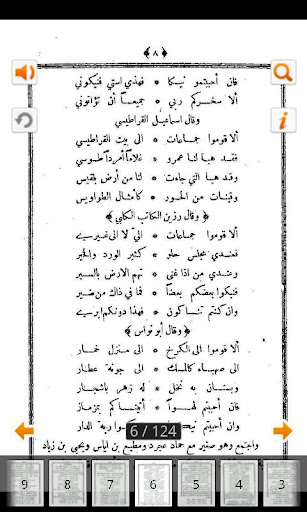 ﴿ ٨ ﴾
فان أحببتمو نيكا * فهذي استي فنيكوني
ألا سخركم ربي * جميعاً أن تؤاتوني
وقال اسماعيل القراطيسي
ألا قوموا جماعات * الى بيت القراطيسي
فقد هيا لنا عمرو * غلاماً أمرداً طوسي
وقد هيا التي جاءت * لنا من أرض بلقيس
وقينات من الحور * كأمثال الطواويس
﴿ وقال رزين الكاتب الكلبي ﴾
ألا قوموا جماعات * الي لا الى غيري
فعندي مجلس حلو * كثير الورد والخير
وعندي من اذا غنى * تهم الارض بالسير
فنيكوا بعضكم بعضاً * فما في ذاك من ضير
وان كنتم تناكون * فهذا دونكم ايري
﴿ وقال أبو نواس ﴾
ألا قوموا الى الكرخ * الى منزل خمار
الى صهباء كالمسك * الى جونة عطار
وبستان به نخل * له زهر باشجار
فان أحببتم لهوا * أتيناكم بزمار
وان أحببتم ربة الدار
واجتمع وهو صغير مع حماد عجرد ومطيع بن اياس ويحيى بن زياد
6 / 124
9 8 7 6 5 4 3